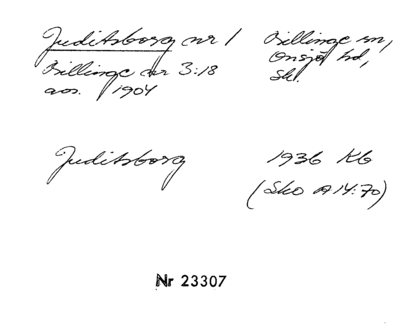 Juditsborg nr 1 Billinge sn,
Onsjö hd,
Billinge nr 3:18 Sk.
avs. 1904
Juditsborg 1936 Kb
(Sko A 14:70)
Nr 23307